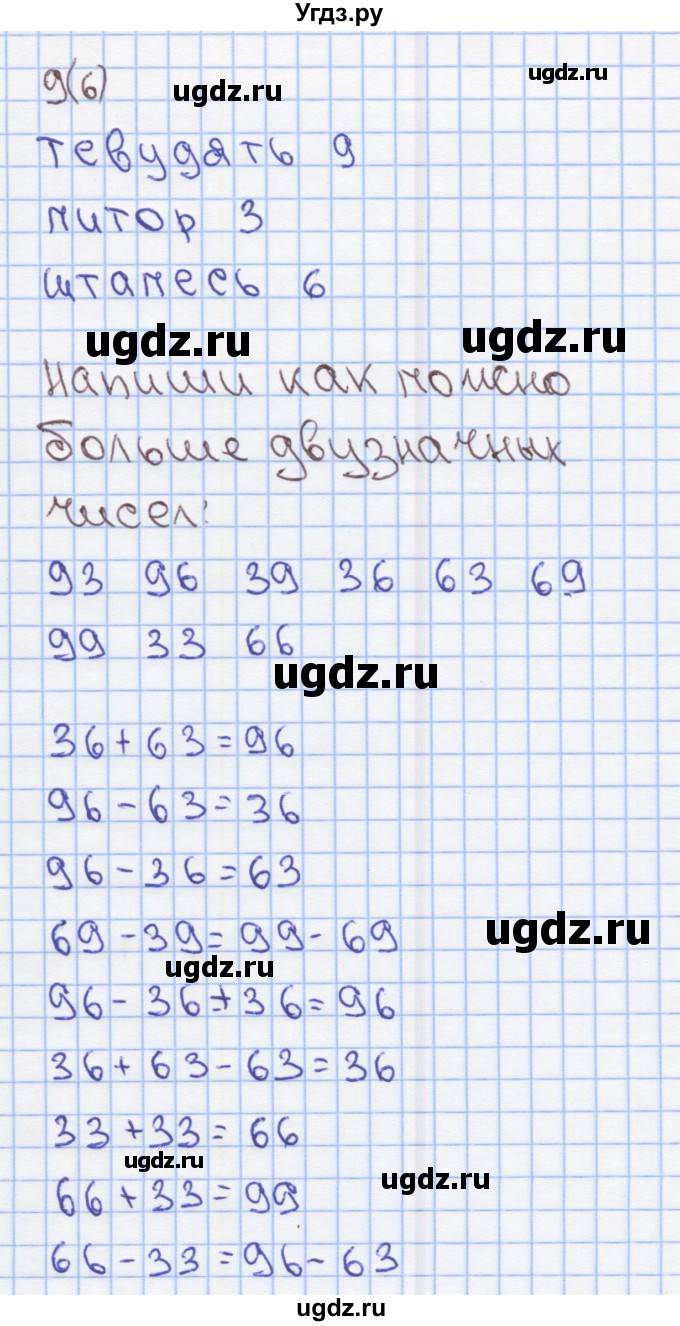 Угдз.ру
9(6) ugdz.ru ugdz.ru
тевудять 9
митор 3
штапесь 6
ugdz.ru ugdz.ru
Напиши как можно
больше двузначных
чисел:
93 96 39 36 63 69
99 33 66
ugdz.ru
36+63=96
96-63=36
96-36=63
69-39=99-69
ugdz.ru
ugdz.ru
96-36+36=96
36+63-63=36
33+33=66
ugdz.ru
ugdz.ru
66+33=99
66-33=96-63
ugdz.ru